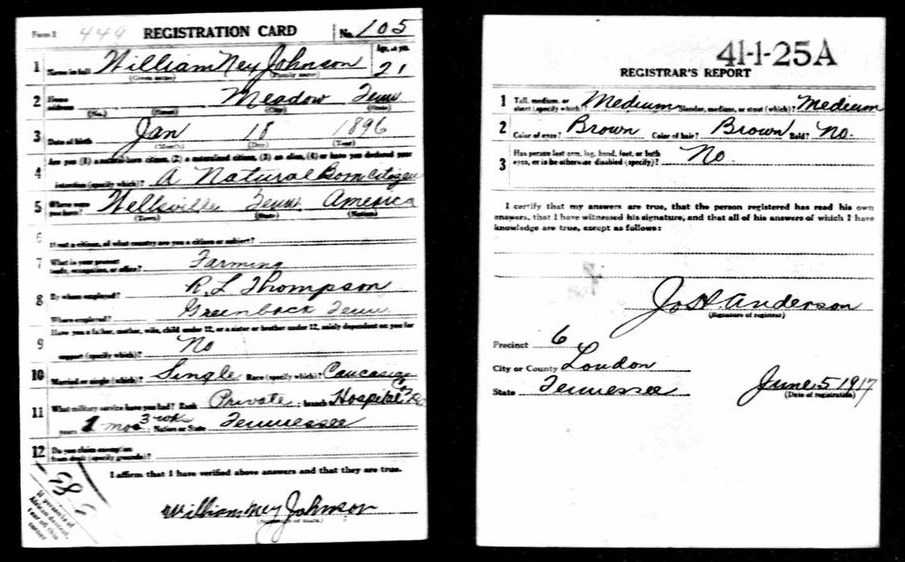 Form 1 449 REGISTRATION CARD No. 105
1 Name in full William Ney Johnson Age, in yrs. 21
(Given name) (Family name)
2 Home address Meadow Tenn
(No.) (Street) (City) (State)
3 Date of birth Jan 18 1896
(Month) (Day) (Year)
Are you (1) a natural-born citizen, (2) a naturalized citizen, (3) an alien, (4) or have you declared your
4 intention (specify which)? A Natural Born Citizen
5 Where were you born? Wellsville Tenn America
(Town) (State) (Nation)
6 If not a citizen, of what country are you a citizen or subject?
7 What is your present trade, occupation, or office? Farming
8 By whom employed? R. L Thompson
Where employed? Greenback Tenn
Have you a father, mother, wife, child under 12, or a sister or brother under 12, solely dependent on you for
9 support (specify which)? No
10 Married or single (which)? Single Race (specify which)? Caucasian
11 What military service have you had? Rank Private ; branch Hospital Co
years 1 mos 3 wks Nation or State Tennessee
12 Do you claim exemption from draft (specify grounds)?
I affirm that I have verified above answers and that they are true.
William Ney Johnson
If person is of African descent, tear off this corner
41-1-25A
REGISTRAR'S REPORT
1 Tall, medium, or short (specify which)? Medium Slender, medium, or stout (which)? Medium
2 Color of eyes? Brown Color of hair? Brown Bald? No.
3 Has person lost arm, leg, hand, foot, or both eyes, or is he otherwise disabled (specify)? No.
I certify that my answers are true, that the person registered has read his own
answers, that I have witnessed his signature, and that all of his answers of which I have
knowledge are true, except as follows:
Jo H. Anderson
(Signature of registrar)
Precinct 6
City or County Loudon
State Tennessee June 5 1917
(Date of registration)